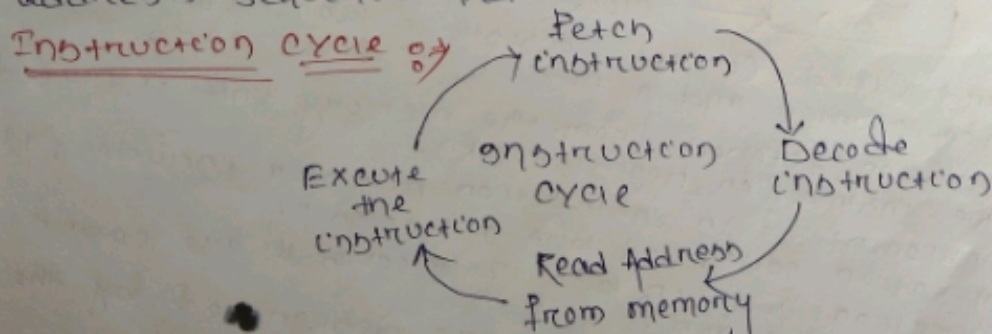 Instruction Cycle :→
Fetch
instruction
Decode
instruction
Read Address
from memory
Excute
the
instruction
Instruction
cycle